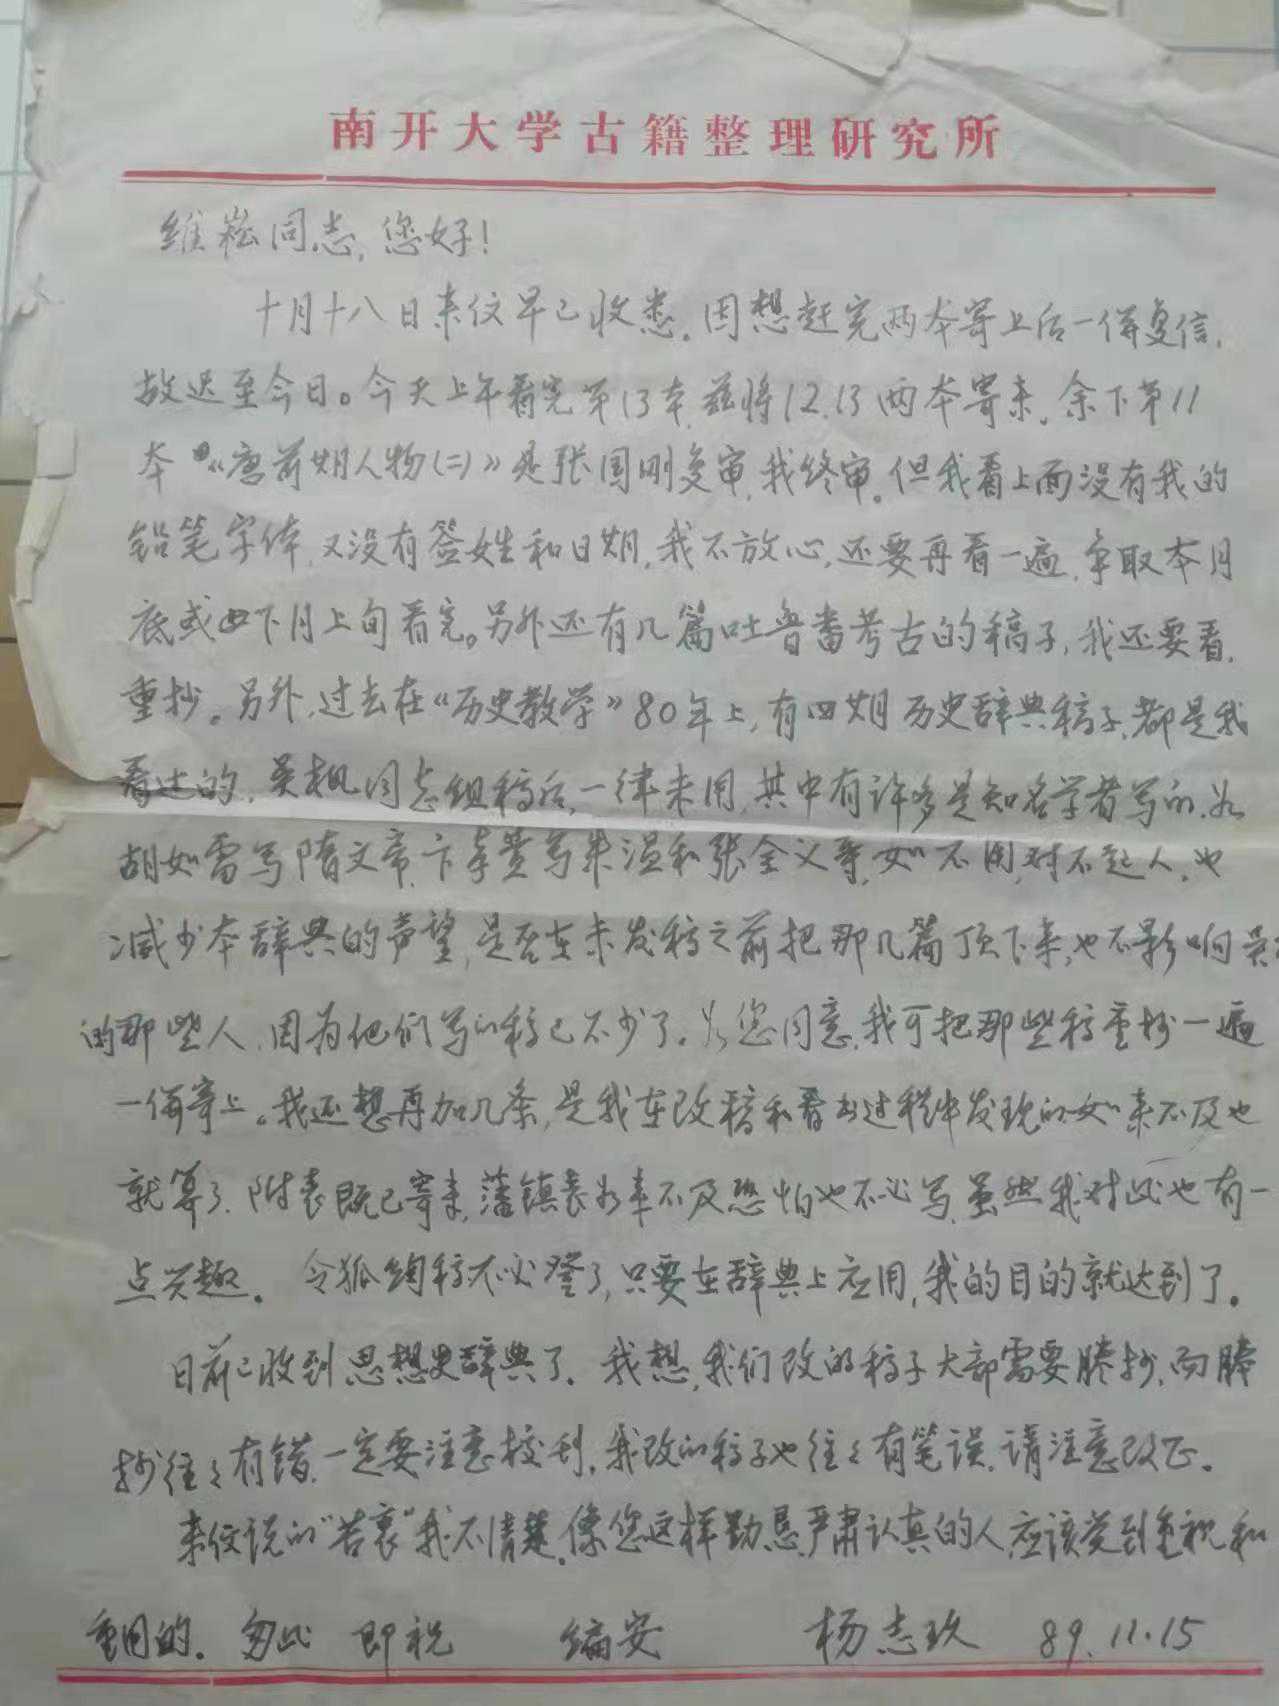 南开大学古籍整理研究所
维崧同志，您好！
十月十八日来信早已收悉。因想赶完两本寄上后一併复信，
故迟至今日。今天上午看完第13本，兹将12.13两本寄来，余下第11
本《唐前期人物(二)》是张国刚复审，我终审。但我看上面没有我的
铅笔字体，又没有签姓和日期，我不放心，还要再看一遍，争取本月
底或下月上旬看完。另外还有几篇吐鲁番考古的稿子，我还要看，
重抄。另外，过去在《历史教学》80年上，有四期历史辞典稿子，都是我
看过的，吴枫同志组稿后，一律未用，其中有许多是知名学者写的，如
胡如雷写隋文帝，卞孝萱写朱温和张全义等，如不用，对不起人，也
减少本辞典的声望，是否在未发稿之前把那几篇顶下来，也不影响吴
的那些人，因为他们写的稿已不少了。如您同意，我可把那些稿重抄一遍
一併寄上。我还想再加几条，是我在改稿和看书过程中发现的，如来不及也
就算了。附表既已寄来，藩镇表如来不及恐怕也不必写，虽然我对此也有一
点兴趣。 令狐绹稿不必登了，只要在辞典上应用，我的目的就达到了。
日前已收到思想史辞典了。我想，我们改的稿子大部需要誊抄，而誊
抄往々有错，一定要注意校刊。我改的稿子也往々有笔误，请注意改正。
来信说的“苦衷”我不清楚。像您这样勤恳严肃认真的人，应该受到重视和
重用的。匆此 即祝 编安 杨志玖 89.11.15